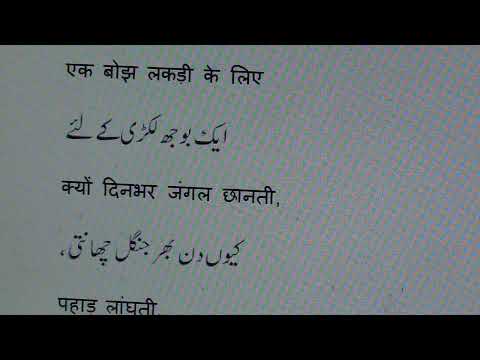 एक बोझ लकड़ी के लिए
ایک بوجھ لکڑی کے لئے
क्यों दिनभर जंगल छानती,
کیوں دن بھر جنگل چھانتی،
पहाड़ लांघती